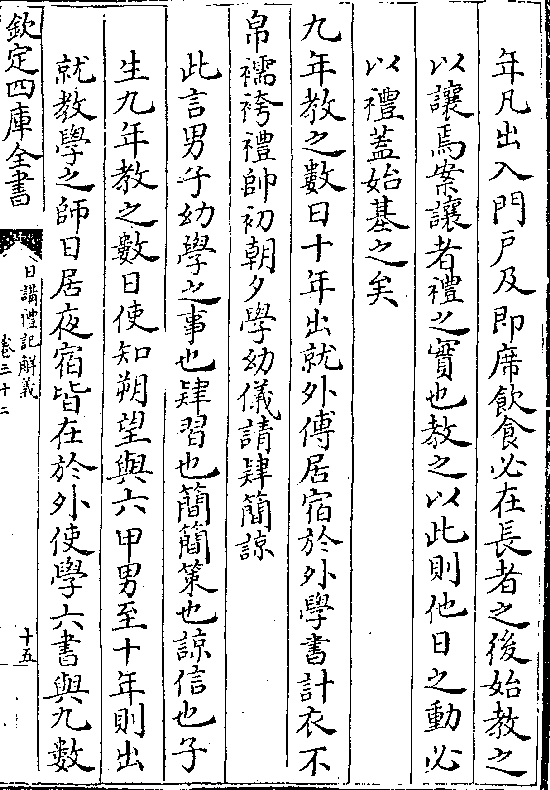 年凡出入門戶及即席飲食必在長者之後始教之
以讓焉案讓者禮之實也教之以此則他日之動必
以禮蓋始基之矣
九年教之數日十年出就外傅居宿於外學書計衣不
帛襦袴禮帥初朝夕學幼儀請肄簡諒
此言男子幼學之事也肄習也簡簡策也諒信也子
生九年教之數日使知朔望與六甲男至十年則出
就教學之師日居夜宿皆在於外使學六書與九數
欽定四庫全書
日講禮記解義
卷三十二
十五